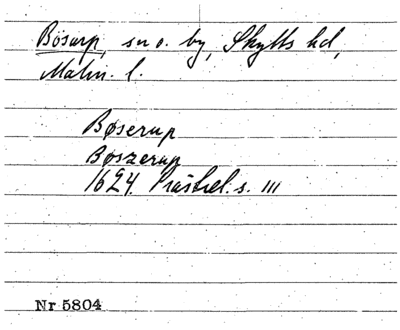 Bösarp, sn o. by, Skytts hd,
Malm. l.
Bøserup
Bøszerup
1624 Præstrel. s. 111
Nr 5804